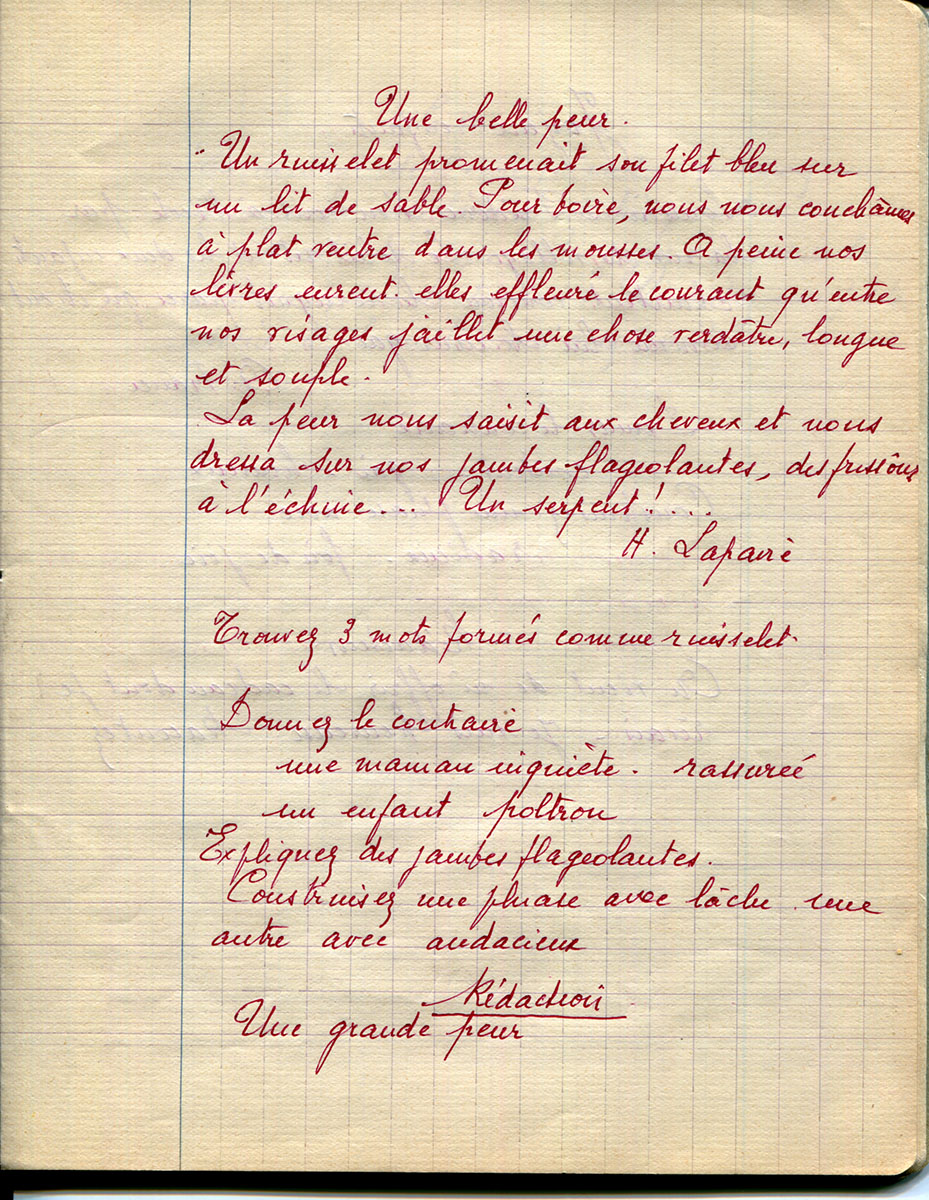 Une belle peur.
" Un ruisselet promenait son filet bleu sur
un lit de sable. Pour boire, nous nous couchâmes
à plat ventre dans les mousses. A peine nos
lèvres eurent elles effleuré le courant qu'entre
nos visages jaillit une chose verdâtre, longue
et souple.
La peur nous saisit aux cheveux et nous
dressa sur nos jambes flageolantes, des frissons
à l'échine... Un serpent!....
H. Lapaire
Trouvez 3 mots formés comme ruisselet.
Donnez le contraire
une maman inquiète. rassurée
un enfant poltron
Expliquez des jambes flageolantes.
Construisez une phrase avec lâche une
autre avec audacieux
Rédaction
Une grande peur